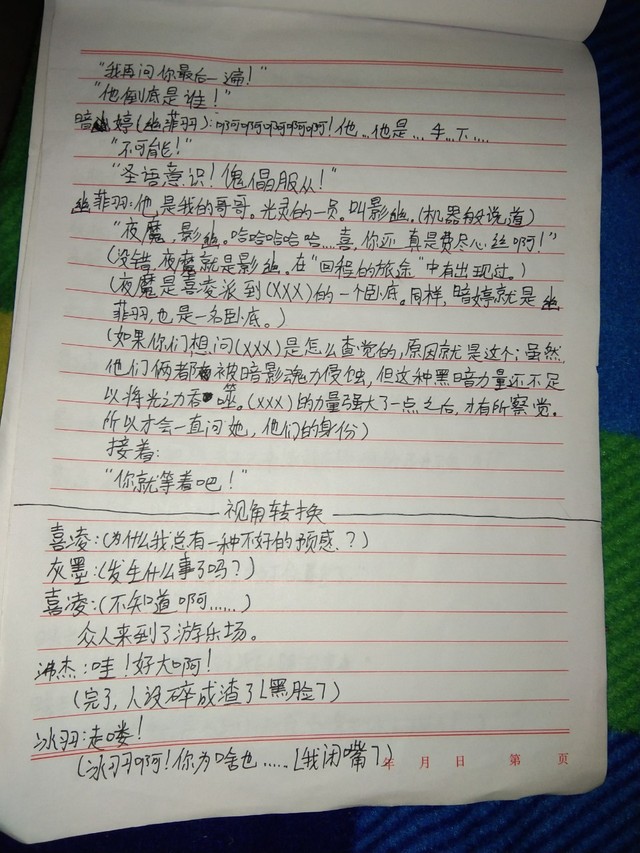 “我再问你最后一遍！”
“他倒底是谁！”
暗婷(幽菲羽)：啊啊啊啊啊啊！他…他也是…
“不可能！”
“圣语意识！傀儡服从！”
幽菲羽：他是我的哥哥。光灵的一员。叫影幽。(机器般说道)
“夜魔，影幽。哈哈哈哈哈…喜，你还真是费尽心丝啊！”
(没错,夜魔就是影幽。在“回程的旅途”中有出现过。)
(夜魔是喜凌派到(XXX)的一个卧底。同样,暗婷就是幽
菲羽,也是一名卧底。)
(如果你们想问(XXX)是怎么查觉的,原因就是这个；虽然
他们俩都被暗影魂力侵蚀,但这种黑暗力量还不足
以将光之力吞噬。(XXX)的力量强大了一点之后,才有所察觉。
所以才会一直问她，他们的身份)
接着：
“你就等着吧！”
视角转换
喜凌：(为什么我总有一种不好的预感.？)
灰墨：(发生什么事了吗？)
喜凌：(不知道啊……)
众人来到了游乐场。
沸杰：哇！好大啊！
(完了,人设碎成渣了[黑脸])
冰羽：走喽！
(冰羽啊！你为啥也……[我闭嘴])
年 月 日 第 页